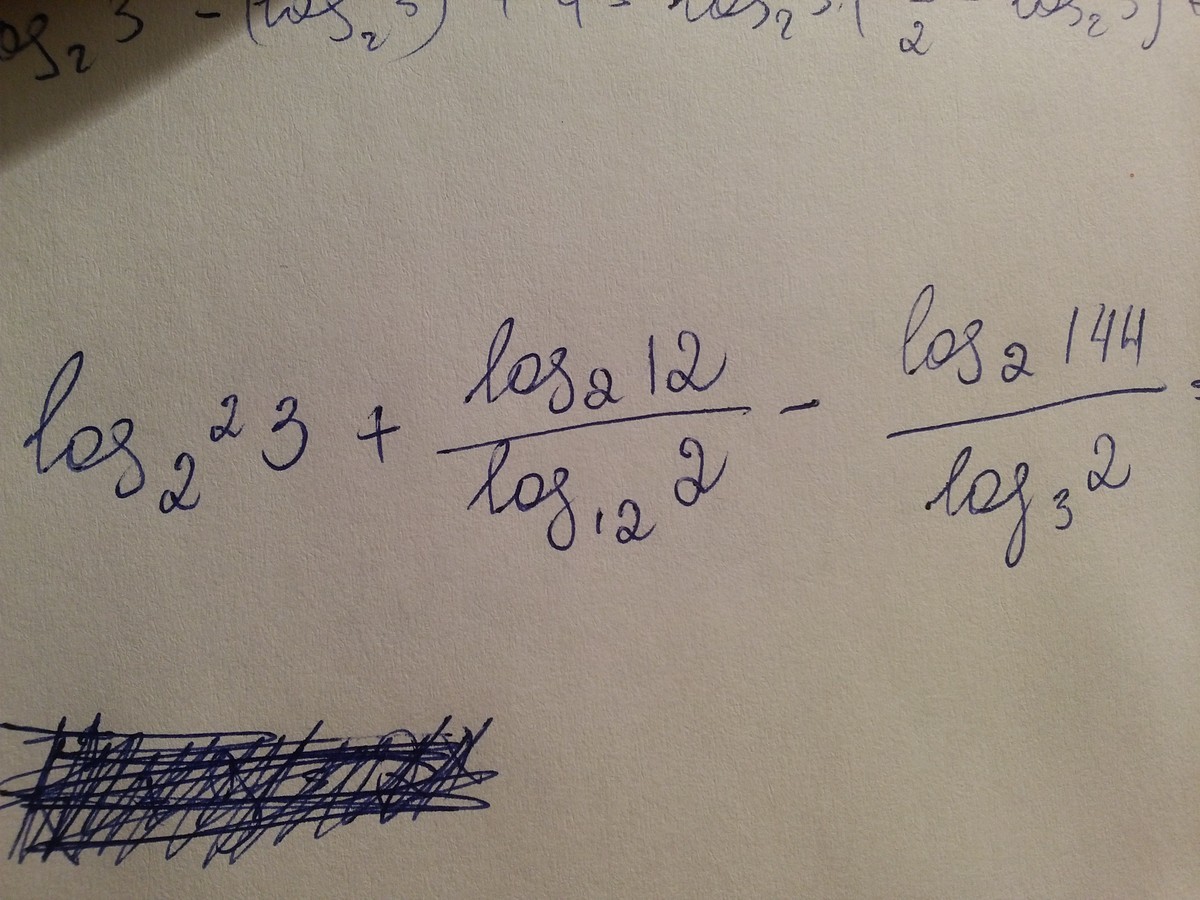 log₂ 3 - (log₂ 3) log₂ 3
log₂² 3 + (log₂ 12)/(log₁₂ 2) - (log₂ 144)/(log₃ 2) =